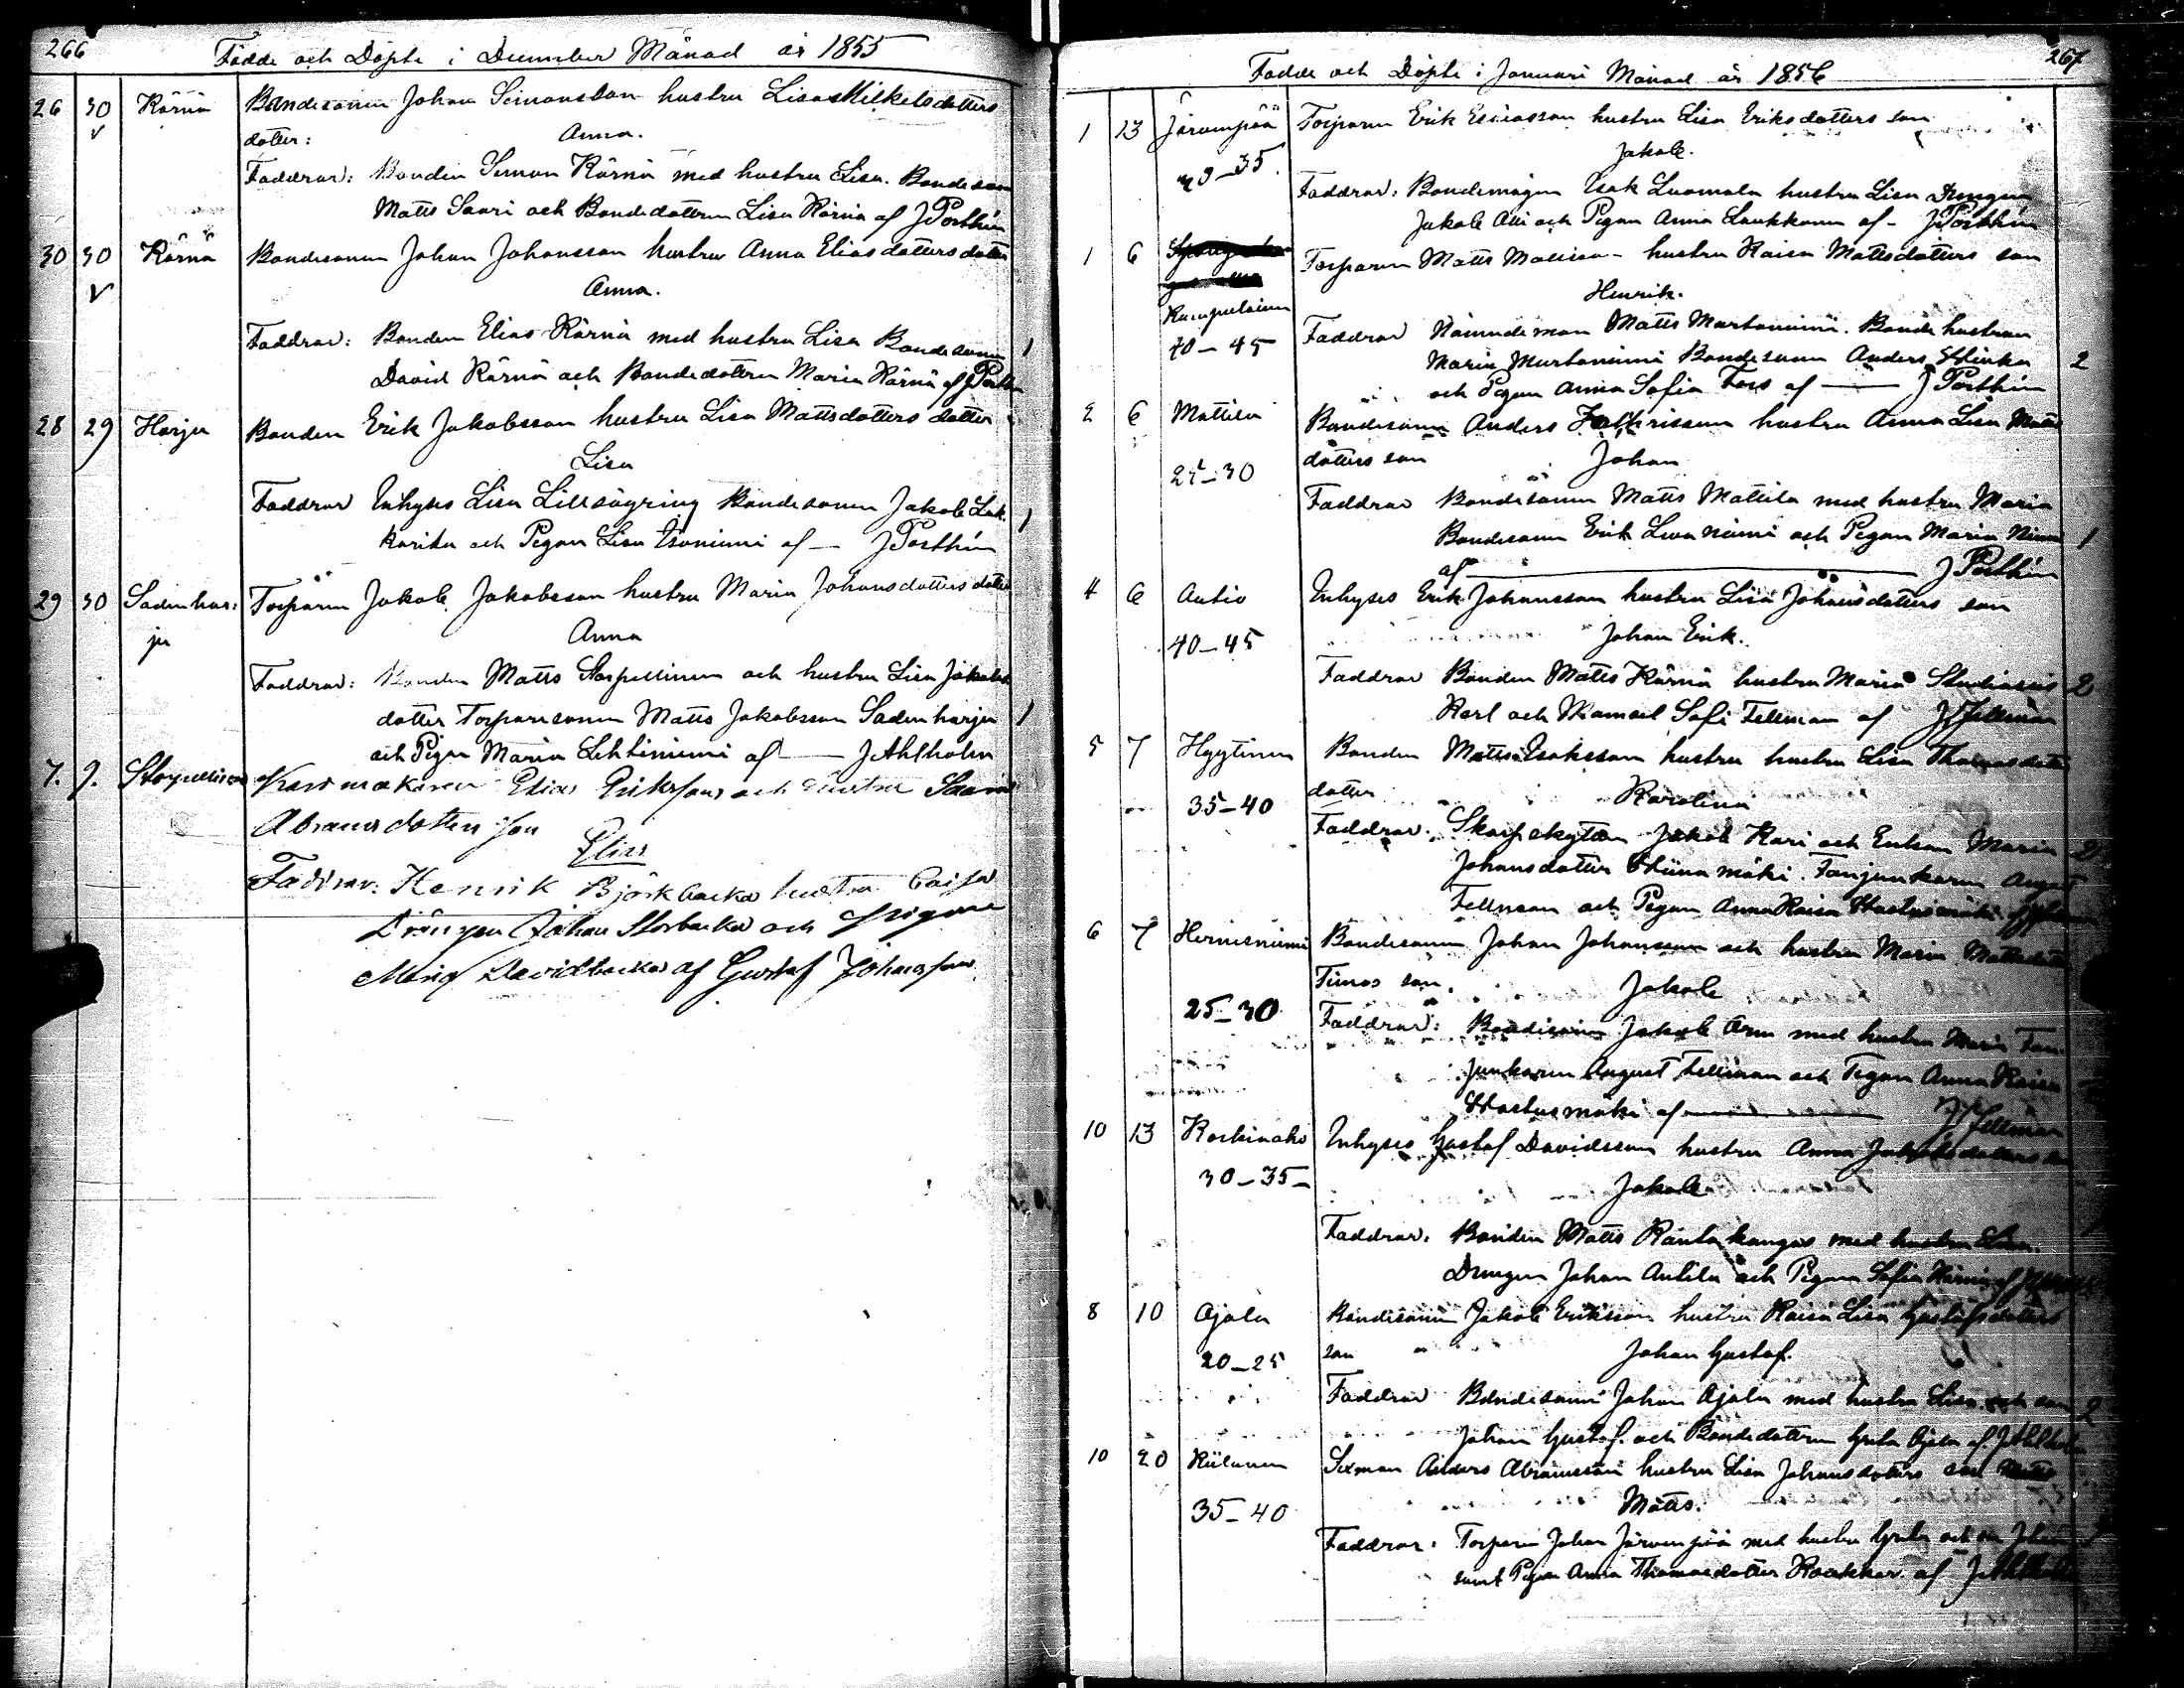 266
Födde och Döpte i December Månad år 1855
26 30 Kärnä Bondesonen Johan Simonsson hustru Lisa Mikelsdotters
dotter: Anna.
Faddrar: Bonden Simon Kärnä med hustru Lisa. Bondeson
Matts Saari och Bondedottren Lisa Kärnä af J Posthin
30 30 Kärnä Bondesonen Johan Johansson hustru Anna Eliasdotters dotter
Anna.
Faddrar: Bonden Elias Kärnä med hustru Lisa Bondesonen 1
David Kärnä och Bondedottren Maria Kärnä af J Posthin
28 29 Harju Bonden Erik Jakobsson hustru Lisa Mattsdotters dotter
Lisa
Faddrar Inhyses Lisa Lillsägring Bondesonen Jakob Lak- 1
karika och Pigan Lisa Isoniemi af — J Posthin
29 30 Sadenhar: Torparen Jakob Jakobsson hustru Maria Johansdotters dotter
ju Anna
Faddrar: Bonden Matts Storpellinen och hustru Lisa Jakobs
dotter Torparesonen Matts Jakobsson Sadenharju 1
och Pigan Maria Lehtiniemi af — J Ahlholm
7. 9. Storpellinen Elias Eriksson och hustru
Abramsdotters son
Elias
Faddrar: Henrik Björkbacka hustru Caisa
Drängen Johan Storbacka och Pigan
Maria Davidbacka af Gustaf Johansson
267
Födde och Döpte i Januari Månad år 1856
1 13 Järvenpää Torparen Erik Esaiasson hustru Lisa Eriksdotters son
Jakob.
30-35. Faddrar: Bondemågen Isak Luomala hustru Lisa Drengen
Jakob Alli och Pigan Anna Laukkonen af - J Posthin
1 6 Torparen Matts Mattsson hustru Kaisa Mattsdotters son
Henrik.
Kumpulainen
40-45 Faddrar Nämndeman Matts Murtoniemi. Bonde hustrun
Maria Murtoniemi Bondesonen Anders Hinka 2
och Pigan Anna Sofia Fors af — J Posthin
2 6 Mattila Bondesonen Anders hustru Anna Lisa Matts
dotters son Johan
25-30
Faddrar Bondesonen Matts Mattila med hustru Maria
Bondesonen Erik Levaniemi och Pigan Maria 1
af — J Posthin
4 6 Autio Inhyses Erik Johansson hustru Lisa Johansdotters son
40-45 Johan Erik.
Faddrar Bonden Matts Kärnä hustru Maria Studiosus 2
Karl och Mamsell Sofi Fellman af J Fellman
5 7 Hyytinen Bonden Matts Isaksson hustru hustru Lisa Thomasdotters
dotter Karolina
35-40
Faddrar. Skarpskytten Jakob Kari och Enkan Maria 2
Johansdotter Hiunamäki. Fanjunkaren August
Fellman och Pigan Anna Kaisa Hautamäki
6 7 Herneniemi Bondesonen Johan Johansson och hustru Maria Mattsdotter
Timos son. Jakob
25-30
Faddrar: Bondesonen Jakob Aron med hustru Maria Fan-
junkaren August Fellman och Pigan Anna Kaisa
Hautamäki af — J Fellman
10 13 Koskinaho Inhyses Gustaf Davidsson hustru Anna Jakobsdotters son
30-35- Jakob
Faddrar: Bonden Matts Rantakangas med hustru Lisa. 1
Drengen Johan Antila och Pigan Sofia Kärnä af
8 10 Ojala Bondesonen Jakob Eriksson hustru Kaisa Lisa Gustafsdotters
20-25 son Johan Gustaf.
Faddrar Bondesonen Johan Ojala med hustru Lisa och son 2
Johan Gustaf. och Bondedottren Greta Ojala af J Ahlholm
10 20 Kiilunen Sexman Anders Abramsson hustru Lisa Johansdotters son
35-40 Matts.
Faddrar: Torparen Johan Järvenpää med hustru Greta och son Johan
samt Pigan Anna Thomasdotter Kaakkar af J Ahlholm